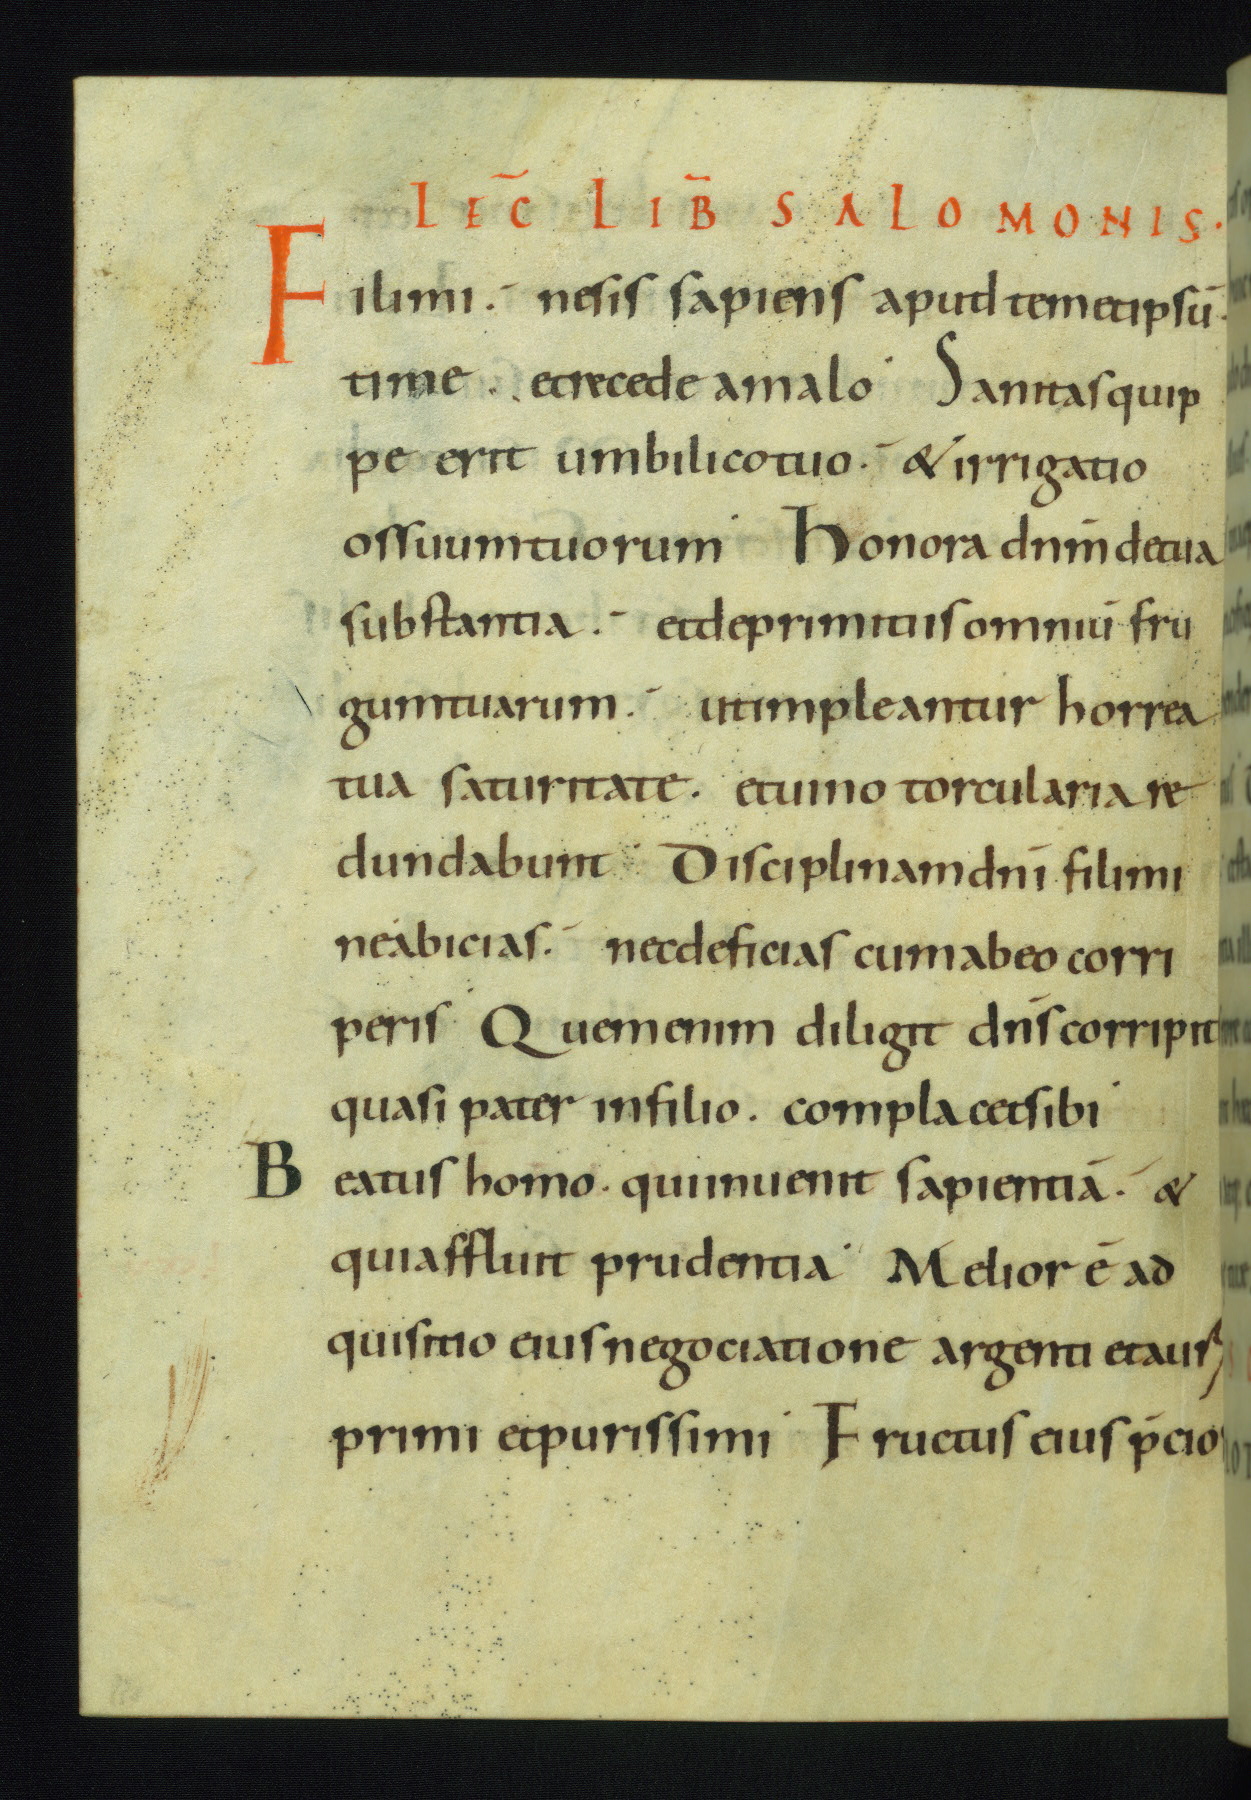 LEC̄ LIB̄ SALOMONIS.
Fili mi. ne sis sapiens apud temetipsū.
time. et recede a malo Sanitas quip
pe erit umbilico tuo. & irrigatio
ossuum tuorum Honora dnm̄ de tua
substantia. et de primitiis omniū fru
gum tuarum. ut impleantur horrea
tua saturitate. et uino torcularia re
dundabunt Disciplinam dnī fili mi
ne abicias. nec deficias cum ab eo corri
peris Quem enim diligit dn̄s corripit
quasi pater in filio. complacet sibi
Beatus homo. qui inuenit sapientiā. &
qui affluit prudentia Melior ē ad
quisitio eius negociatione argenti et auri
primi et purissimi Fructus eius p̄cio